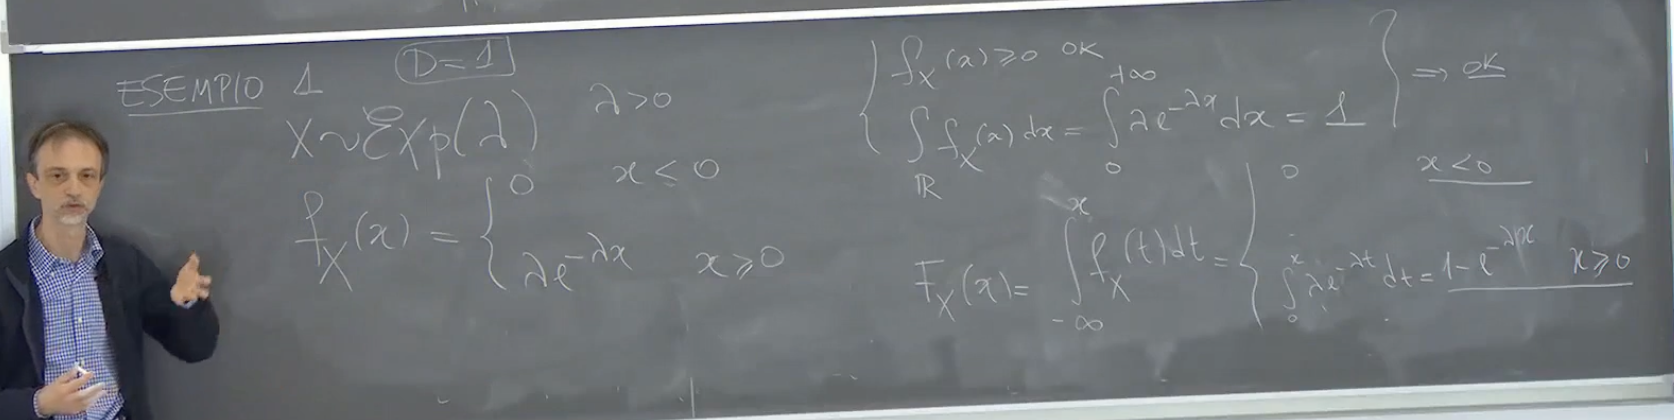 ESEMPIO 1 D=1
X~Exp(λ) λ>0
f_X(x) = { 0 x<0
λe^{-λx} x⩾0
{ f_X(x)⩾0 OK
∫_ℝ f_X(x)dx = ∫_0^{+∞} λe^{-λx}dx = 1 } ⇒ OK
F_X(x)= ∫_{-∞}^x f_X(t)dt = { 0 x<0
∫_0^x λe^{-λt}dt = 1-e^{-λx} x⩾0